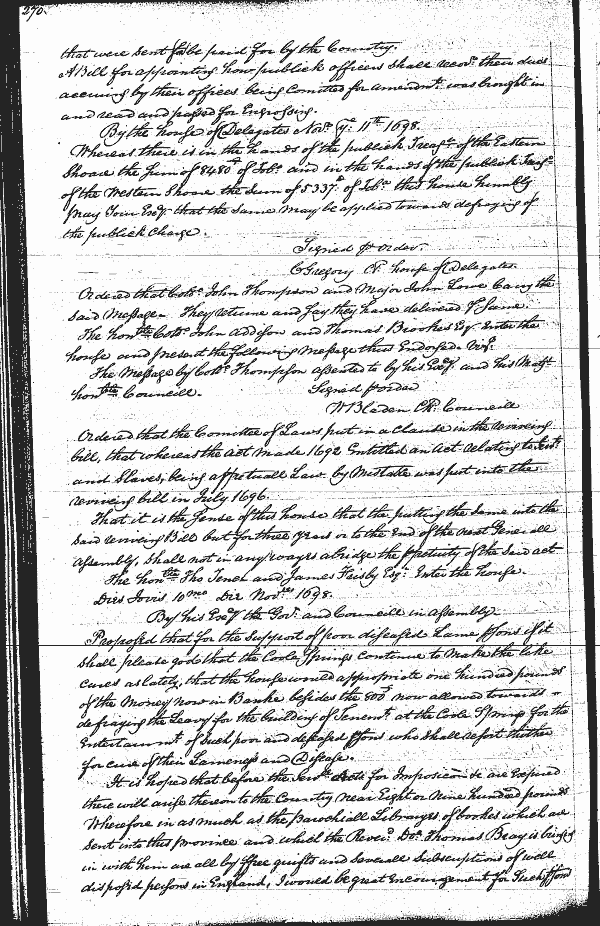 270.
that were sent for be paid for by the Country.
A Bill for appointing how publick officers shall recov.r their dues
accruing by their offices being Comitted for amendm.t was brought in
and read and passed for Engrossing.
By the house of Delegates Nov.r y.e 11th 1698.
Whereas there is in the hands of the publick Treasr. of the Eastern
Shoare the Sum of 8480 of Tob.o and in the hands of the publick Treasr.
of the Western Shoare the Sum of 5337 of Tob.o this house humbly
Pray Your Excy. that the Same may be applied towards defraying of
the publick Charge.
Signed p order.
C Gregory Cl. house of Delegates.
Ordered that Coll.o John Thompson and Major John Lowe Carry the
said Message. They returne and say they have delivered y.e Same.
The hon.ble Coll.o John Addison and Thomas Brookes Esq.r Enter the
house and present the following Message thus Endorsed Viz.t
The Message by Coll.o Thompson assented to by his Ex.cy and his Maj.ts
hon.ble Councill.
Signed p order
W Bladen Cl. Councill
Ordered that the Comittee of Laws put in a Clause in the reviving
bill, that whereas the act made 1692 Entitled an act relating to Serv.ts
and Slaves, being a ppetuall Law by Mistake was put into the
reviving bill in July 1696.
That it is the Sense of this house that the putting the same into the
said reviving Bill but for three years or to the End of the next Generall
Assembly, Shall not in any wayes abridge the ppetuity of the Said act
The hon.ble Tho Tench and James Frisby Esq.r Enter the house.
Dies Jovis 10mo Die Nov.bris 1698.
By his Ex.cy the Gov.r and Councill in assembly
Proposed that for the Support of poor diseased Lame psons if it
shall please god that the Coole Springs continue to Make the like
cures as lately, that the house would appropriate one hundred pounds
of the Money now in Banke besides the 800 now allowed towards
defraying the Leavy for the building of Tenem.ts at the Coole Springs for the
Entertainm.t of Such poor and diseased psons who shall resort thither
for cure of their Lameness and Disease.
It is hoped that before the Sev.ll Acts for Imposicon &c are Expired
there will arise thereon to the Country near Eight or Nine hundred pounds
Wherefore in as much as the Parochiall Libraryes of bookes which are
sent into this province and which the Rever.d D.r Thomas Bray is bringing
in with him are all by free guifts and severall Subscriptions of well
disposed persons in England, I would be great Encouragement for Such psons